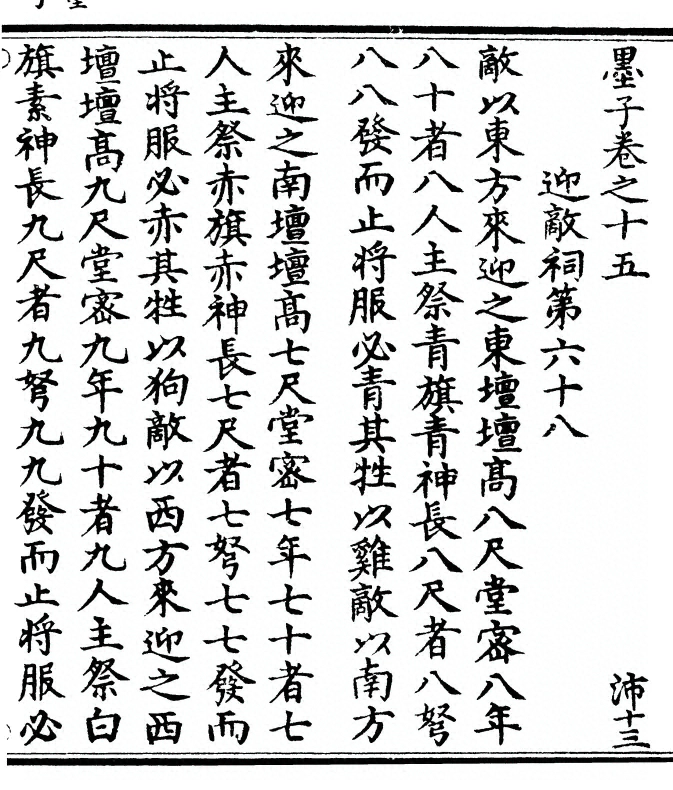 墨子卷之十五 沛十三
迎敵祠第六十八
敵以東方來迎之東壇壇高八尺堂宻八年
八十者八人主祭青旗青神長八尺者八弩
八八發而止将服必青其牲以雞敵以南方
來迎之南壇壇高七尺堂宻七年七十者七
人主祭赤旗赤神長七尺者七弩七七發而
止将服必赤其牲以狗敵以西方來迎之西
壇壇髙九尺堂宻九年九十者九人主祭白
旗素神長九尺者九弩九九發而止将服必